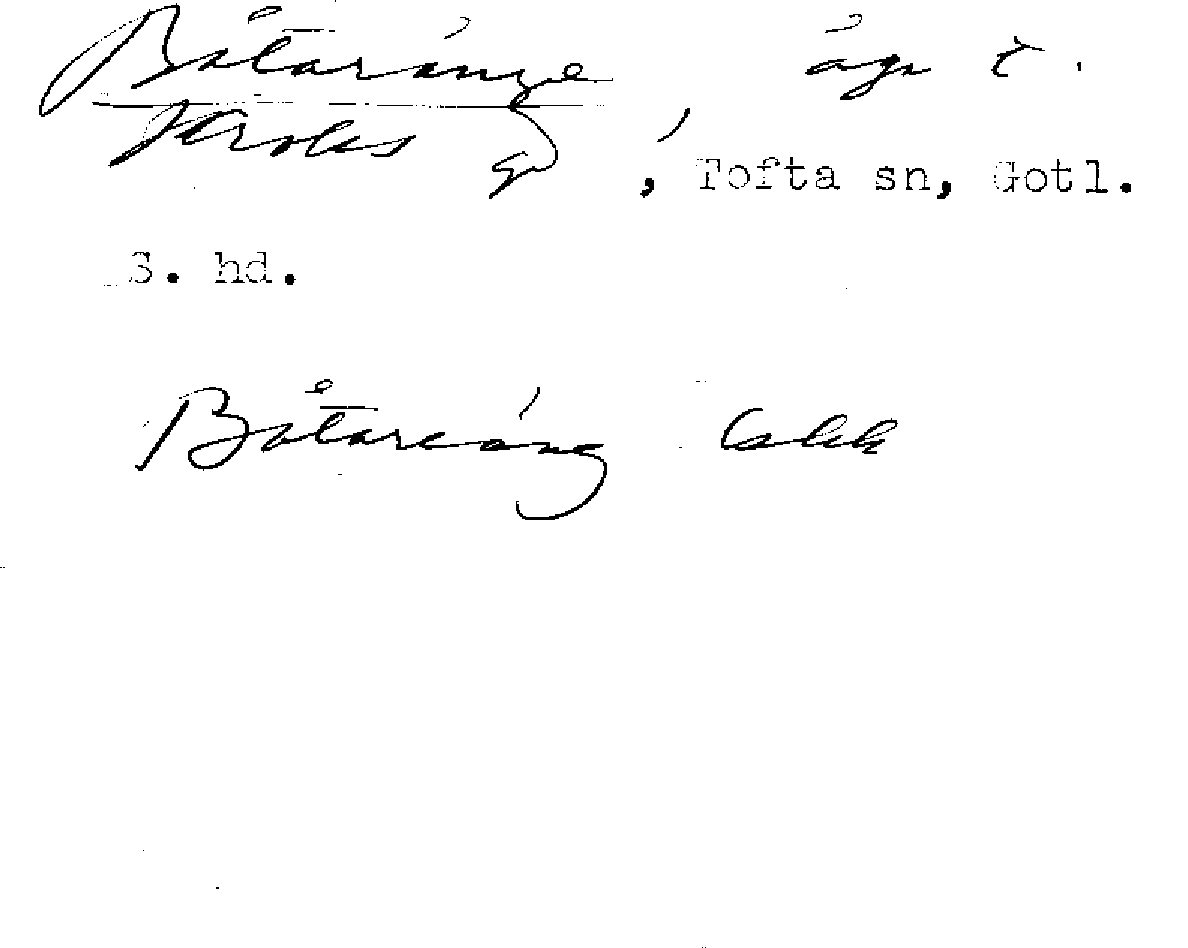 Båtaränge, ägor t.
Kroks gd, Tofta sn, Gotl.
S. hd.
Båtareäng